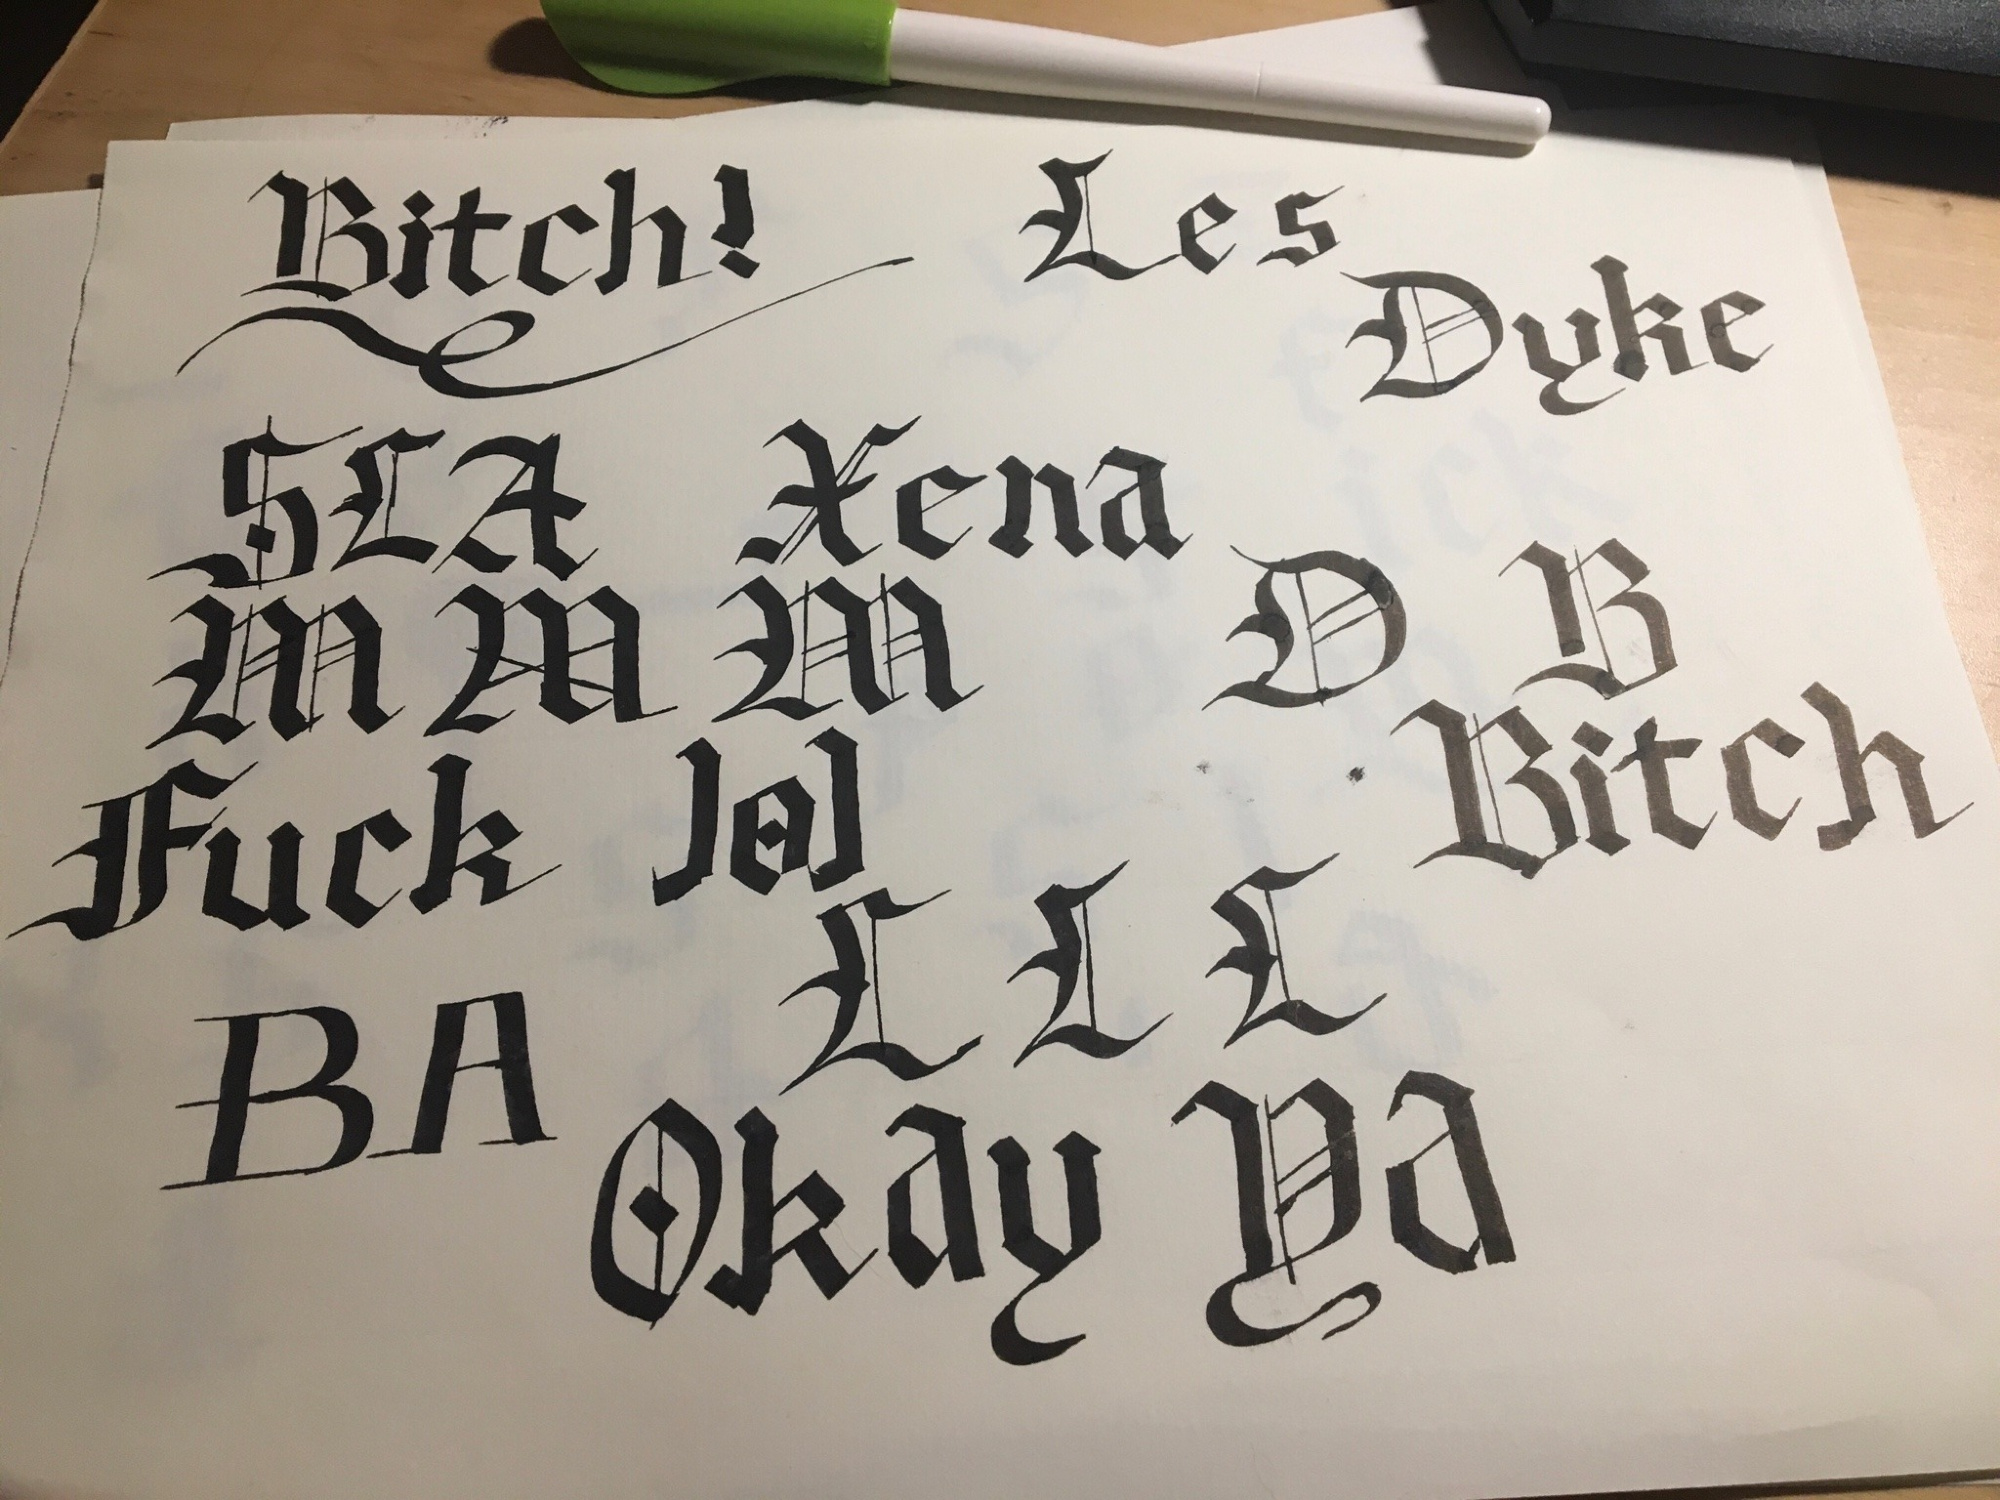 Bitch! Les
Dyke
SLA Xena
M M M D B
Bitch
Fuck
L L L
BA
Okay Ya